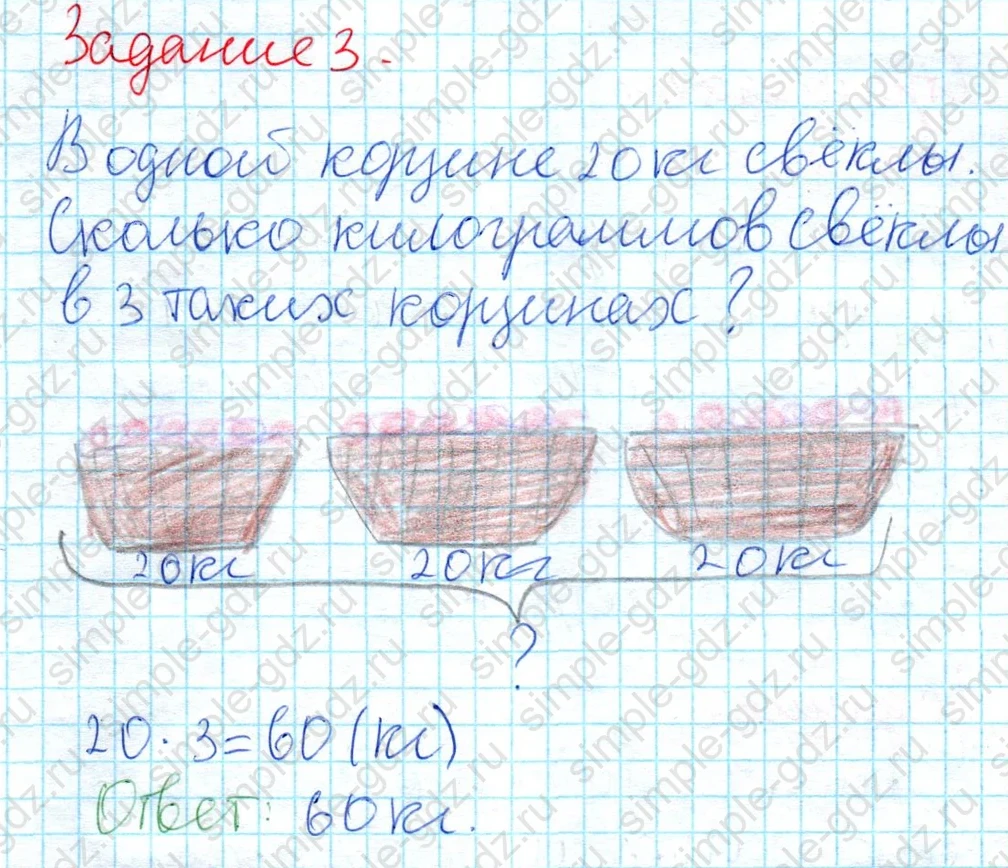 Задание 3.
В одной корзине 20 кг свёклы.
Сколько килограммов свёклы
в 3 таких корзинах?
20 кг 20 кг 20 кг
?
20 · 3 = 60 (кг)
Ответ: 60 кг.
simple-gdz.ru